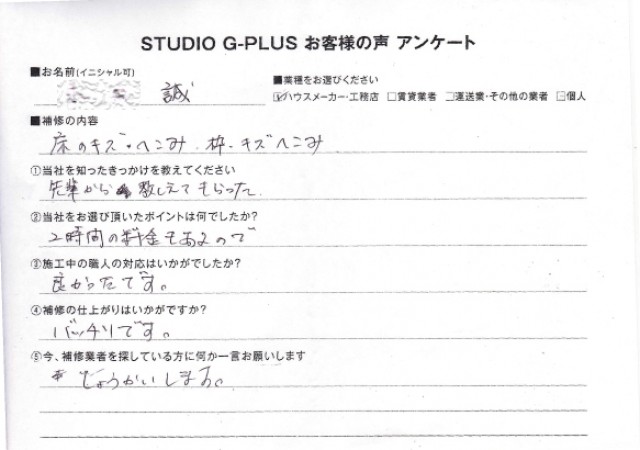 STUDIO G-PLUS お客様の声 アンケート
■お名前(イニシャル可)
誠
■業種をお選びください
☑ハウスメーカー・工務店 □賃貸業者 □運送業・その他の業者 □個人
■補修の内容
床のキズ・へこみ 枠・キズへこみ
①当社を知ったきっかけを教えてください
先輩から 教しえてもらった
②当社をお選び頂いたポイントは何でしたか?
2時間の料金もあるので
③施工中の職人の対応はいかがでしたか?
良かったです。
④補修の仕上がりはいかがですか?
バッチリです。
⑤今、補修業者を探している方に何か一言お願いします
しょうかいします。